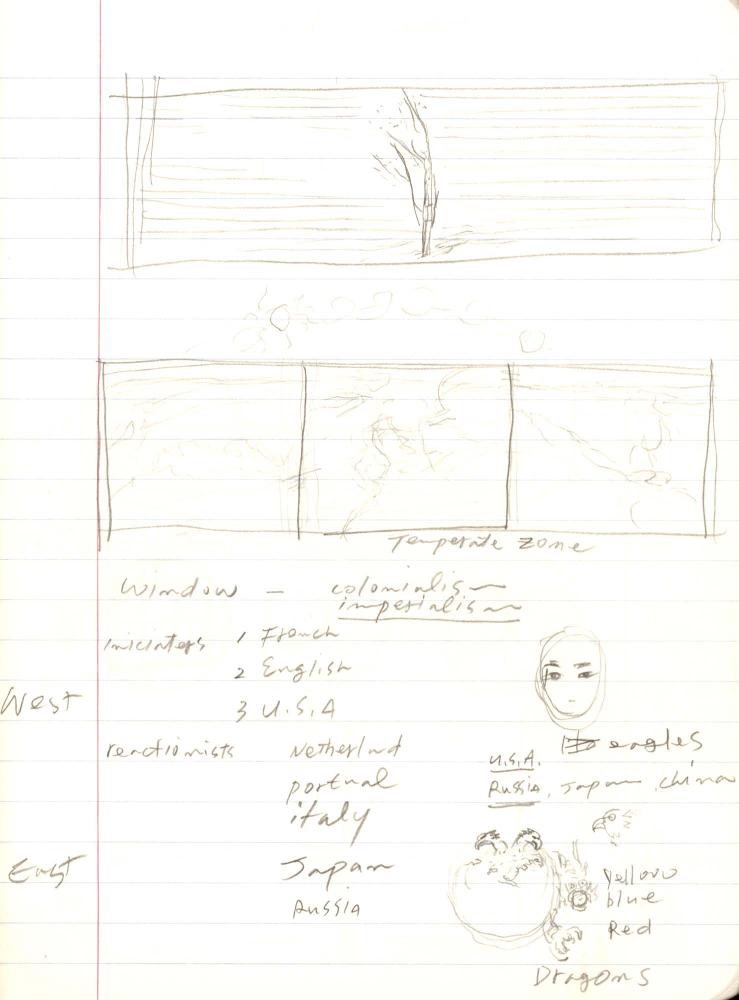 Temperate zone
Window — colonialism
imperialism
iniciaters 1 French
2 English
West
3 U.S.A
reactionists Netherland
portual
italy
East
Japan
Russia
eagles
U.S.A.
Russia, Japan, China
yellow
blue
Red
Dragons